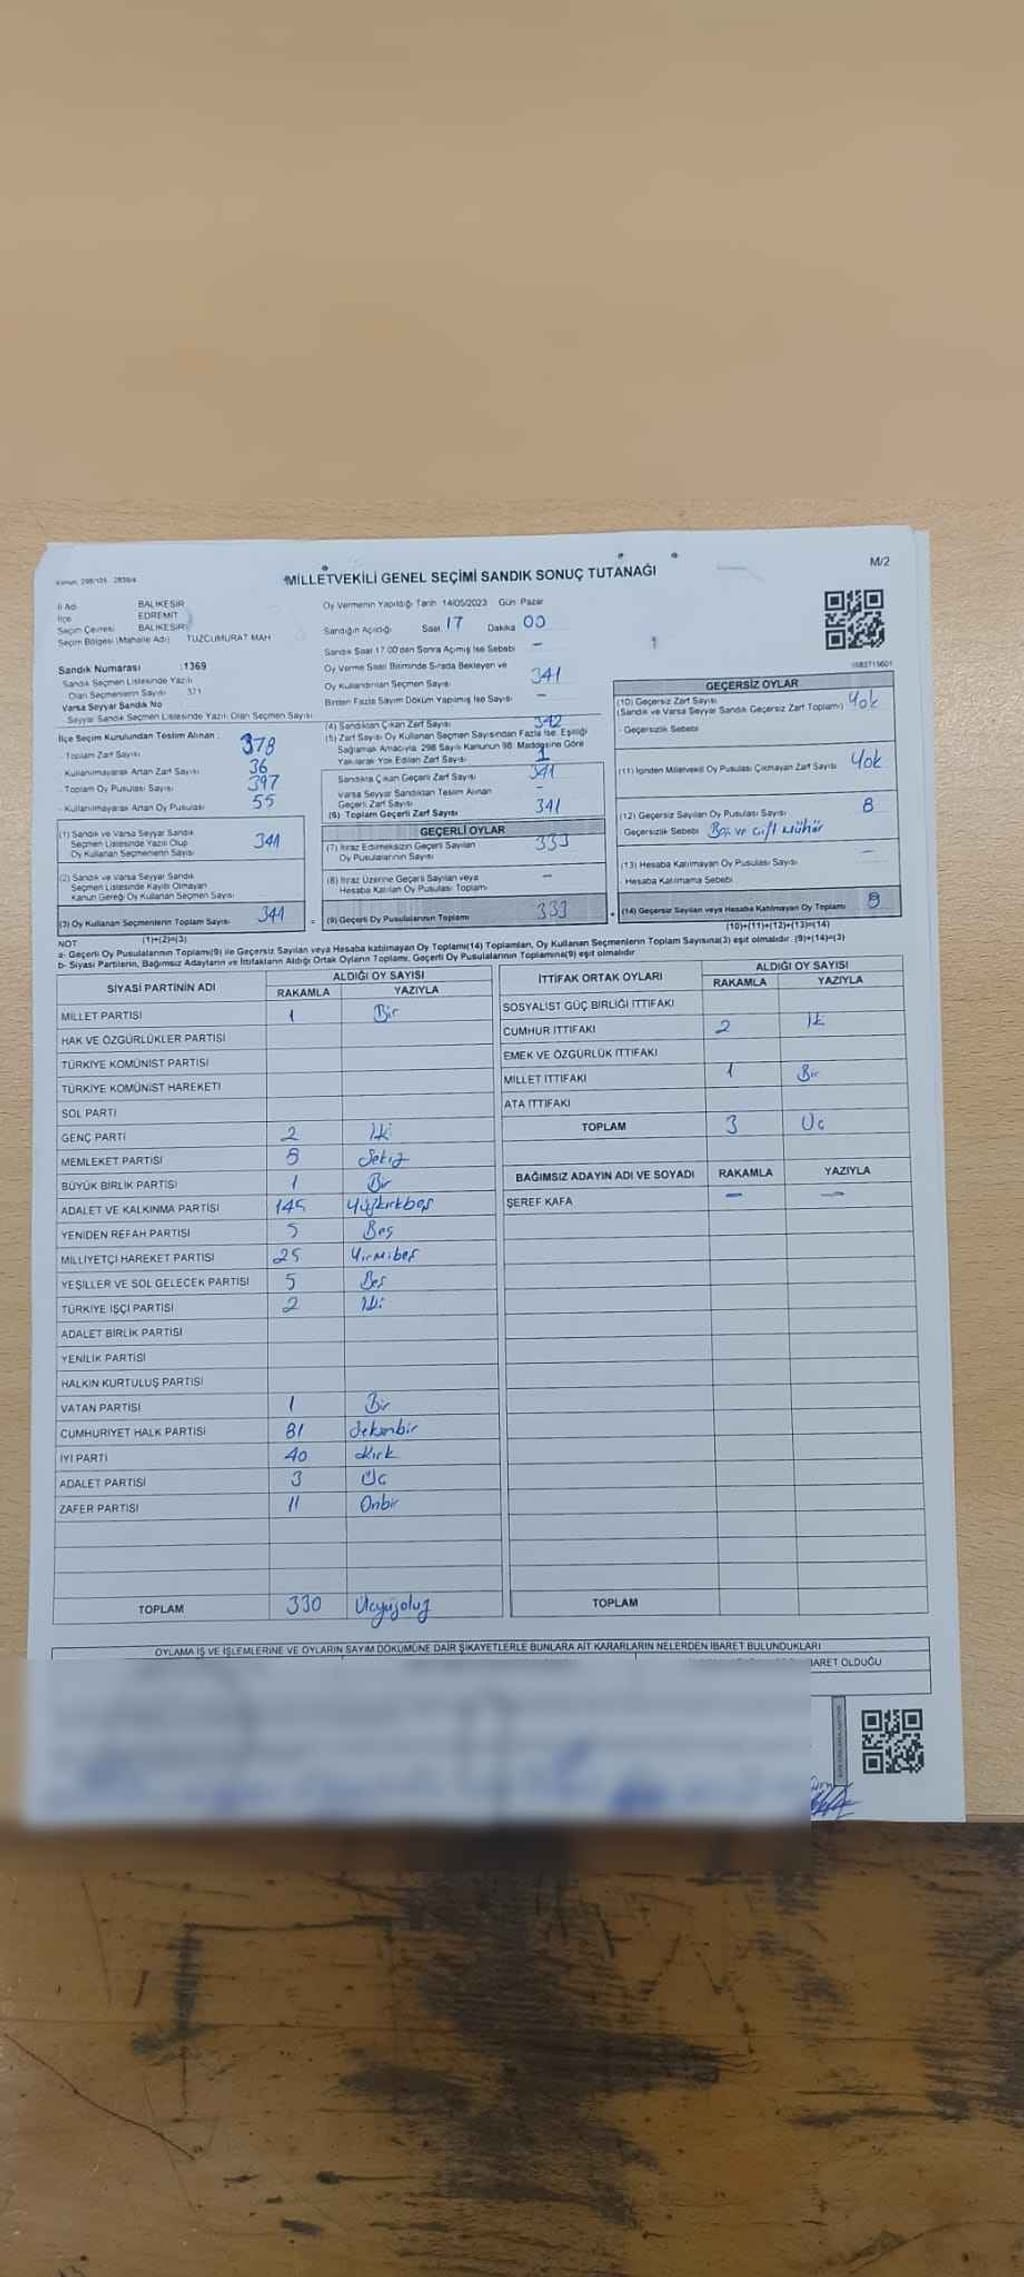 Kanun: 298/105 - 2839/4
MİLLETVEKİLİ GENEL SEÇİMİ SANDIK SONUÇ TUTANAĞI
M/2
İl Adı BALIKESİR
İlçe EDREMİT
Seçim Çevresi BALIKESİR
Seçim Bölgesi (Mahalle Adı) TUZCUMURAT MAH
Sandık Numarası :1369
Sandık Seçmen Listesinde Yazılı
Olan Seçmenlerin Sayısı 371
Varsa Seyyar Sandık No
Seyyar Sandık Seçmen Listesinde Yazılı Olan Seçmen Sayısı
İlçe Seçim Kurulundan Teslim Alınan :
- Toplam Zarf Sayısı 378
- Kullanılmayarak Artan Zarf Sayısı 36
- Toplam Oy Pusulası Sayısı 397
- Kullanılmayarak Artan Oy Pusulası 55
(1) Sandık ve Varsa Seyyar Sandık
Seçmen Listesinde Yazılı Olup
Oy Kullanan Seçmenlerin Sayısı 341
(2) Sandık ve Varsa Seyyar Sandık
Seçmen Listesinde Kayıtlı Olmayan
Kanun Gereği Oy Kullanan Seçmen Sayısı
(3) Oy Kullanan Seçmenlerin Toplam Sayısı 341
(1)+(2)=(3)
Oy Vermenin Yapıldığı Tarih 14/05/2023 Gün Pazar
Sandığın Açıldığı Saat 17 Dakika 00
Sandık Saat 17:00'den Sonra Açılmış İse Sebebi -
Oy Verme Saati Bitiminde Sırada Bekleyen ve
Oy Kullandırılan Seçmen Sayısı 341
Birden Fazla Sayım Döküm Yapılmış İse Sayısı -
(4) Sandıktan Çıkan Zarf Sayısı 342
(5) Zarf Sayısı Oy Kullanan Seçmen Sayısından Fazla İse, Eşitliği
Sağlamak Amacıyla, 298 Sayılı Kanunun 98. Maddesine Göre
Yakılarak Yok Edilen Zarf Sayısı 1
Sandıkta Çıkan Geçerli Zarf Sayısı 341
Varsa Seyyar Sandıktan Teslim Alınan
Geçerli Zarf Sayısı -
(6) Toplam Geçerli Zarf Sayısı 341
GEÇERLİ OYLAR
(7) İtiraz Edilmeksizin Geçerli Sayılan
Oy Pusulalarının Sayısı 333
(8) İtiraz Üzerine Geçerli Sayılan veya
Hesaba Katılan Oy Pusulası Toplamı -
= (9) Geçerli Oy Pusulalarının Toplamı 333
1583715601
GEÇERSİZ OYLAR
(10) Geçersiz Zarf Sayısı
(Sandık ve Varsa Seyyar Sandık Geçersiz Zarf Toplamı) Yok
- Geçersizlik Sebebi
(11) İçinden Milletvekili Oy Pusulası Çıkmayan Zarf Sayısı Yok
(12) Geçersiz Sayılan Oy Pusulası Sayısı 8
Geçersizlik Sebebi Boş ve çift mühür
(13) Hesaba Katılmayan Oy Pusulası Sayısı -
Hesaba Katılmama Sebebi
+ (14) Geçersiz Sayılan veya Hesaba Katılmayan Oy Toplamı 8
(10)+(11)+(12)+(13)=(14)
NOT
a- Geçerli Oy Pusulalarının Toplamı(9) ile Geçersiz Sayılan veya Hesaba katılmayan Oy Toplamı(14) Toplamları, Oy Kullanan Seçmenlerin Toplam Sayısına(3) eşit olmalıdır. (9)+(14)=(3)
b- Siyasi Partilerin, Bağımsız Adayların ve İttifakların Aldığı Ortak Oyların Toplamı, Geçerli Oy Pusulalarının Toplamına(9) eşit olmalıdır
SİYASİ PARTİNİN ADI ALDIĞI OY SAYISI
RAKAMLA YAZIYLA
MİLLET PARTİSİ 1 Bir
HAK VE ÖZGÜRLÜKLER PARTİSİ
TÜRKİYE KOMÜNİST PARTİSİ
TÜRKİYE KOMÜNİST HAREKETİ
SOL PARTİ
GENÇ PARTİ 2 İki
MEMLEKET PARTİSİ 8 Sekiz
BÜYÜK BİRLİK PARTİSİ 1 Bir
ADALET VE KALKINMA PARTİSİ 145 Yüzkırkbeş
YENİDEN REFAH PARTİSİ 5 Beş
MİLLİYETÇİ HAREKET PARTİSİ 25 Yirmibeş
YEŞİLLER VE SOL GELECEK PARTİSİ 5 Beş
TÜRKİYE İŞÇİ PARTİSİ 2 İki
ADALET BİRLİK PARTİSİ
YENİLİK PARTİSİ
HALKIN KURTULUŞ PARTİSİ
VATAN PARTİSİ 1 Bir
CUMHURİYET HALK PARTİSİ 81 Seksenbir
İYİ PARTİ 40 Kırk
ADALET PARTİSİ 3 Üç
ZAFER PARTİSİ 11 Onbir
TOPLAM 330 Üçyüzotuz
İTTİFAK ORTAK OYLARI ALDIĞI OY SAYISI
RAKAMLA YAZIYLA
SOSYALİST GÜÇ BİRLİĞİ İTTİFAKI
CUMHUR İTTİFAKI 2 İki
EMEK VE ÖZGÜRLÜK İTTİFAKI
MİLLET İTTİFAKI 1 Bir
ATA İTTİFAKI
TOPLAM 3 Üç
BAĞIMSIZ ADAYIN ADI VE SOYADI RAKAMLA YAZIYLA
ŞEREF KAFA - -
TOPLAM
OYLAMA İŞ VE İŞLEMLERİNE VE OYLARIN SAYIM DÖKÜMÜNE DAİR ŞİKAYETLERLE BUNLARA AİT KARARLARIN NELERDEN İBARET BULUNDUKLARI
İBARET OLDUĞU